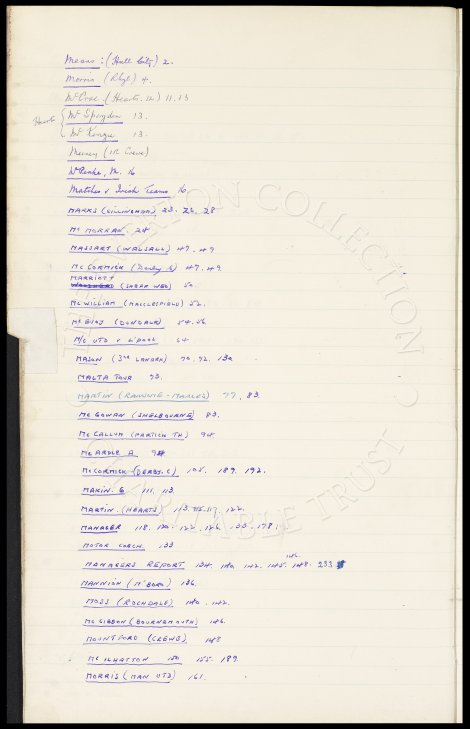 Means : (Hull City) 2.
Morris (Rhyl) 4.
McCrae (Hearts. 12) 11. 13
Hearts { Mr Speyden 13.
Mr Kenzie 13.
Meiney (in Crewe)
M. 16
Matches v Irish Teams 16
MARKS (GILLINGHAM) 23. 26. 28
Mc MORRAN. 24
MASSART (WALSALL) 47. 49
MC CORMICK (Derby C) 47. 49.
MARRIOTT
(SHEFF WED) 50.
MC WILLIAM (MACCLESFIELD) 52.
MC EVOY (DUNDALK) 54. 56.
M/C UTD v L'pool 64
MASON (3RD LANARK) 70. 72. 130
MALTA TOUR 73.
MARTIN 77. 83.
MC GOWAN (SHELBOURNE) 83.
MC CALLUM (PARTICK TH) 94
MC ARDLE A 94
MCCORMICK (DERBY. C) 105. 189. 192.
MAKIN. G 111. 113
MARTIN. (HEARTS) 113. 115. 117. 122.
MANAGER 118. 120. 122. 126. 133. 178.
MOTOR COACH 133
146.
MANAGERS REPORT 134. 140. 142. 145. 148. 233
MANNION (M'BORO) 136.
MOSS (ROCHDALE) 140. 142.
MC GIBBON (BOURNEMOUTH) 146.
MOUNTFORD (CREWE) 148
MC ILHATTON 150 155. 189.
MORRIS (MAN UTD) 161.
THE EVERTON COLLECTION
CHARITABLE TRUST